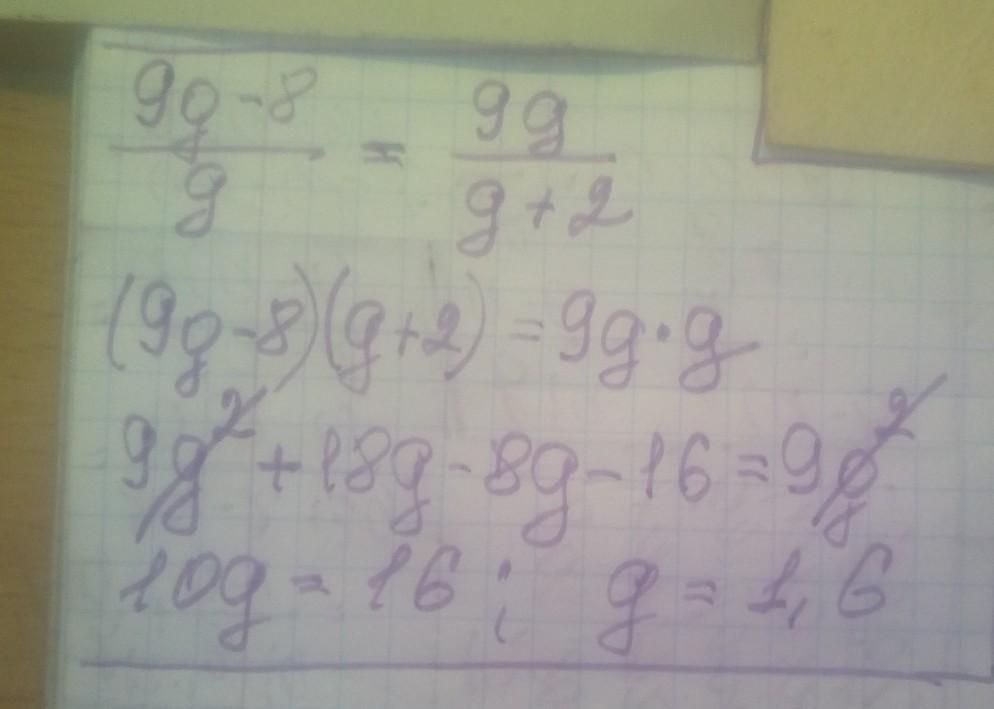 (9g-8)/g = 9g/(g+2)
(9g-8)(g+2) = 9g·g
9g² + 18g - 8g - 16 = 9g²
10g = 16 ; g = 1,6